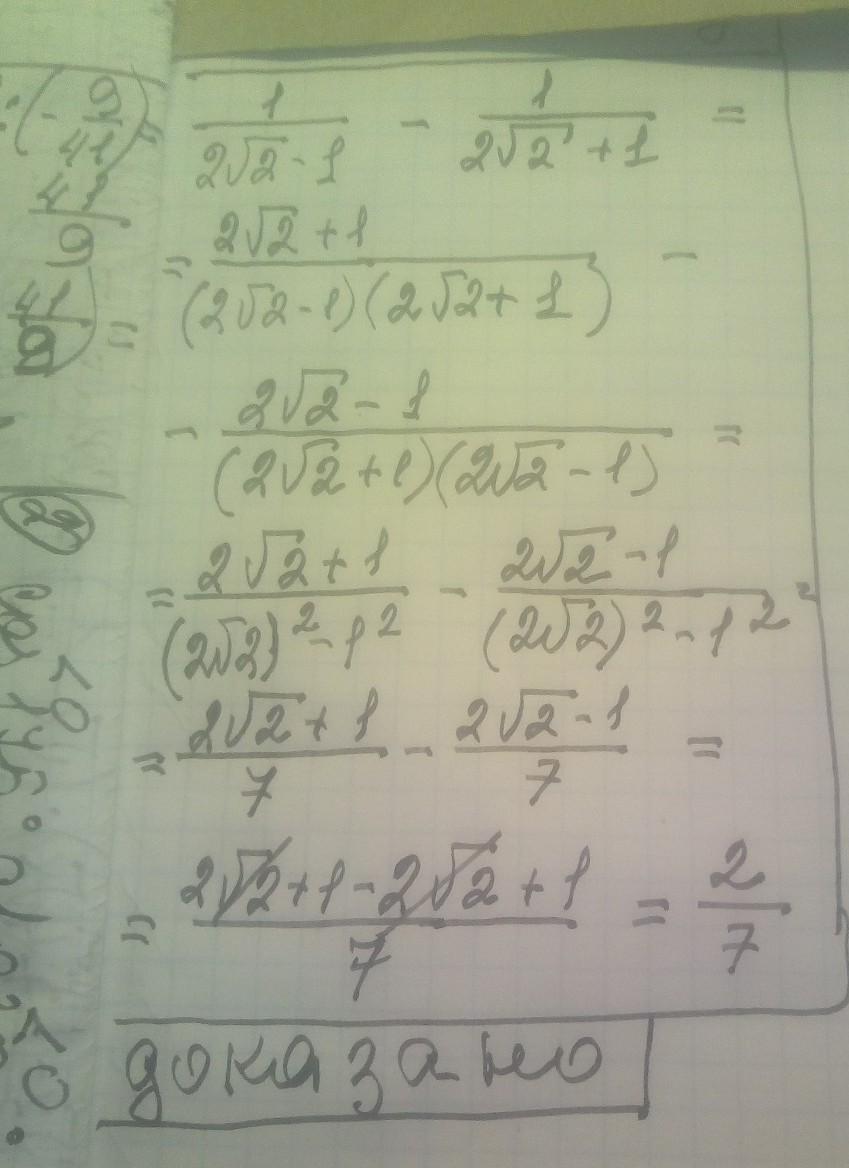 :(-9/41)=
41/9
41/9)=
22
1/(2√2-1) - 1/(2√2+1) =
= (2√2+1)/((2√2-1)(2√2+1)) -
- (2√2-1)/((2√2+1)(2√2-1)) =
= (2√2+1)/((2√2)²-1²) - (2√2-1)/((2√2)²-1²) =
= (2√2+1)/7 - (2√2-1)/7 =
= (2√2+1-2√2+1)/7 = 2/7
доказано